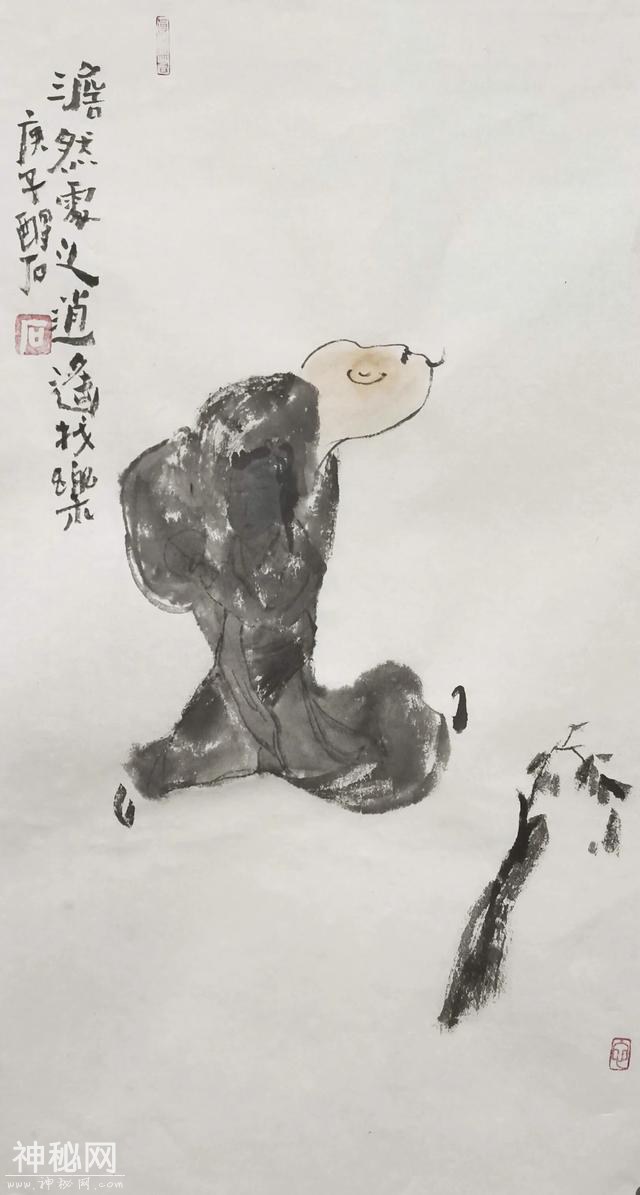 澹然處之逍遙找樂
庚子醒石
石
神秘网
www.神秘网.com